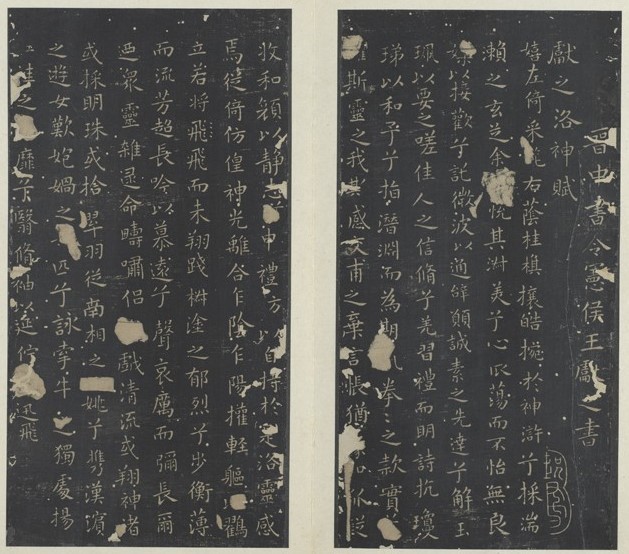 晉中書令憲侯王獻之書
獻之洛神賦
嬉左倚采旄右蔭桂旗攘皓捥於神滸兮採湍
瀨之玄芝余悅其淑美兮心振蕩而不怡無良
以接歡兮託微波以通辭願誠素之先達兮解玉
珮以要之嗟佳人之信脩兮羌習禮而明詩抗瓊
珶以和予兮指潛淵而為期執拳〻之款實
斯靈之我欺感交甫之棄言悵猶狐疑
收和顏以靜志申禮防以自持於是洛靈感
焉徙倚仿偟神光離合乍陰乍陽擢輕軀鶴
立若將飛飛而未翔踐椒塗之郁烈兮步蘅薄
而流芳超長吟以慕遠兮聲哀厲而彌長爾
迺衆靈雜遝命疇嘯侶戲清流或翔神渚
或採明珠或拾翠羽從南湘之姚兮攜漢濱
之遊女歎匏媧之匹兮詠牽牛之獨處揚
袿之靡兮翳脩袖以延佇迅飛